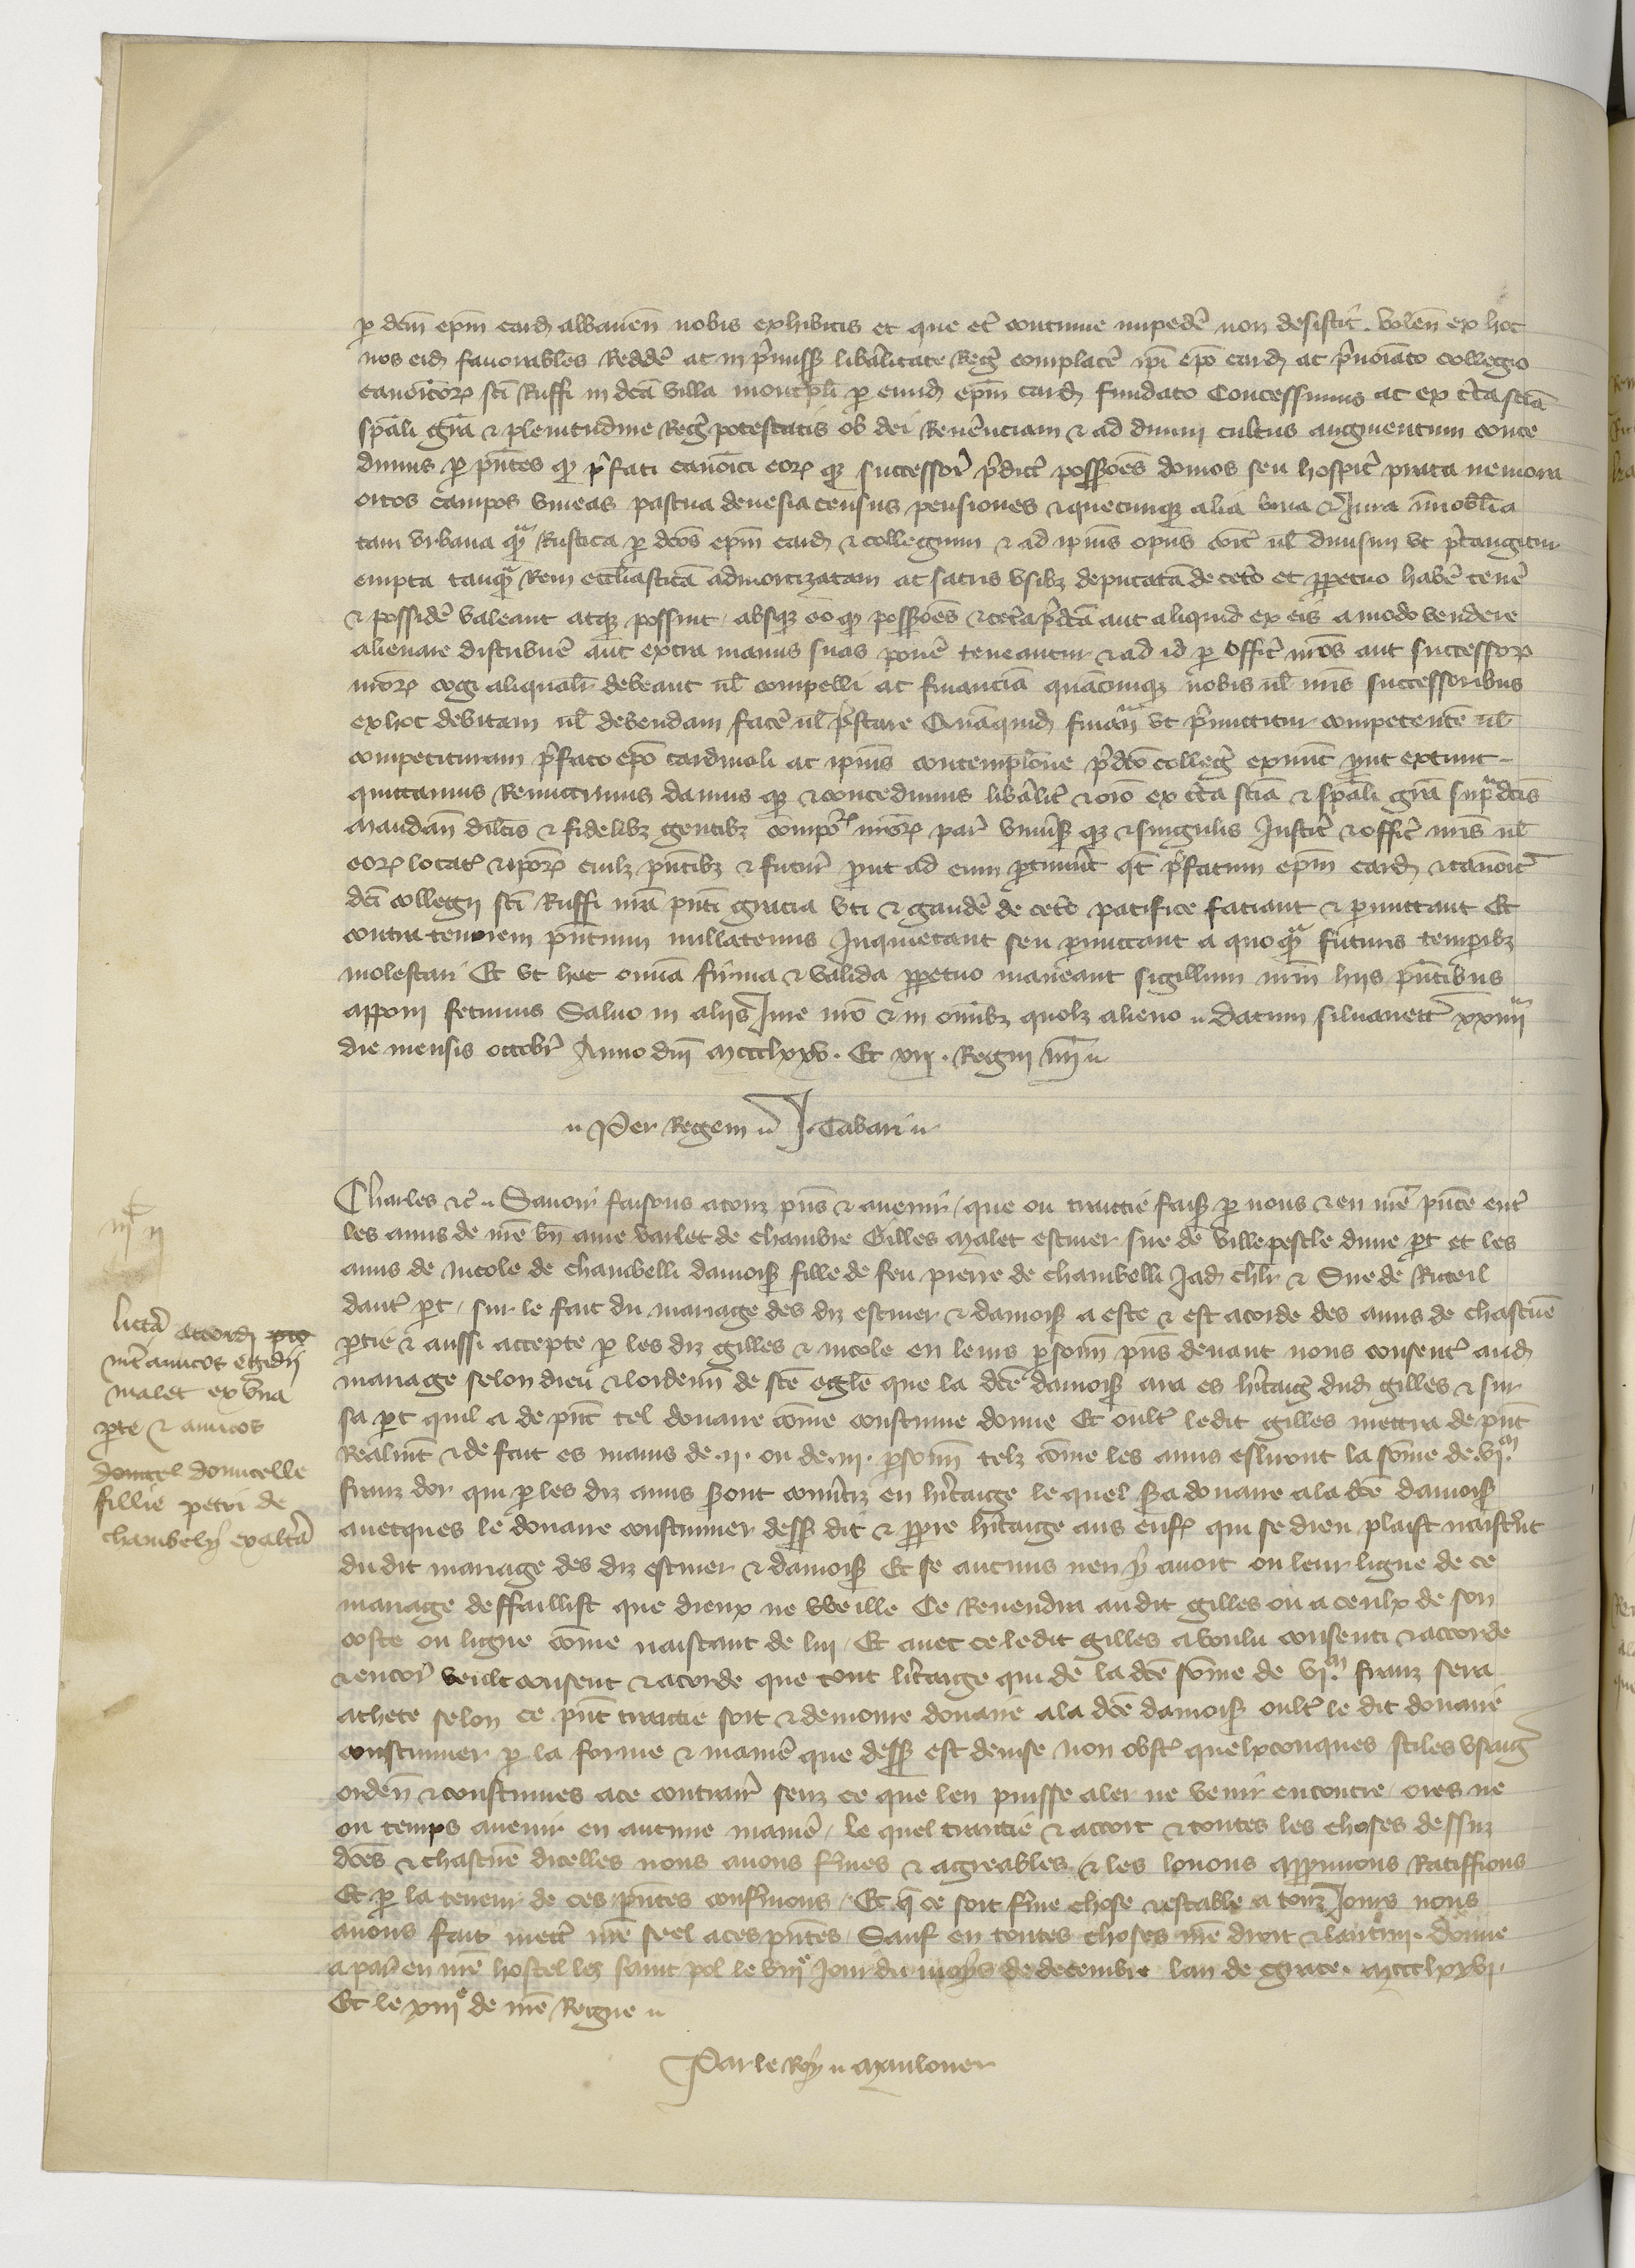 p dcm epm card albanen nobis exhibitis et que etc continue impede non desistit. volen ex hoc
nos eid fauorables redde ac in pmiss liberalitate reg complace ipi epo card ac pnoiato collegio
canonicor sti Ruffi in dca villa montpli p eund epm card fundato Concessimus ac ex cta scia
spali gra & plenitudine reg potestatis ob dei reuerenciam & ad diuini cultus augmentum conce
dimus p pntes qd pfati canoici eor qz successor pdict possoes domos seu hospic prata nemora
ortos campos vineas pascua deuesia census pensiones & quecunqz alia bona & Jura imobilia
tam vrbana qm rustica p dcos epm card & collegium & ad ipius opus coit ul diuisim vt ptangitur
empta tanqm rem eccliasticam admortizatam ac sacris vsibz deputatam de ceto et ppetuo habe tene
& posside valeant atqz possint absqz eo qd possoes & cetera pdca aut aliquid ex eis amodo vendere
alienare distribue aut extra manus suas pone teneantur & ad id p offic nros aut successor
nror cogi aliqualr debeant ul compelli ac financia quacunqz nobis ul nris successoribus
ex hoc debitam ul debendam face ul pstare Quaquid finan vt pmittitur competente ul
competituram pfato epo cardinali ac ipius contemplone pdco colleg exnunc put extunc
quittamus remittimus damus qz & concedimus liberalit & oio ex cta scia & spali gra supdcis
Mandan dilcis & fidelibz gentibz compor nror par vniuis qz & singulis Justic & offic nris ul
eor locat & ipor cuilz pntibz & futur put ad eum ptinuit qt pfatum epm card & canoic
dci collegii sti Ruffi nra pnti gracia vti & gaude de ceto pacifice faciant & pmittant Et
contra tenorem pntium nullatenus Inquietant seu pmittant a quoqm futuris tempibz
molestari Et vt hec omia firma & valida ppetuo maneant sigillum nrm hiis pntibus
apponi fecimus Saluo in aliis Jure nro & in omibz quolz alieno Datum siluanect xxiiii
die mensis octobr Anno dni mccclxxv. Et xii. Regni nri
Per Regem J. Tabari
Charles &c Sauoir faisons a touz pns & auenir que ou traictie fais p nous & en nre pnce ent
les amis de nre bn ame varlet de chambre Gilles Malet escuier sire de villepescle dune pt et les
amis de Nicole de chambelli damois fille de feu pierre de chambelli Jad chlr & Sire de Ruteil
daut pt sur le fait du mariage des diz escuier & damois a este & est acorde des amis de chascune
ptie & aussi accepte p les diz gilles & nicole en leurs psonn pns deuant nous consent aud
mariage selon dieu & lordenn de ste egle que la dce damois ara es hitaig dud gilles & sur
sa pt quil a de pnt tel douaire come coustume donne Et oult ledit gilles mettra de pnt
realmt & de fait es mains de .ii. ou de .iii. psonn telz come les amis esliront la some de vi.m
franz dor qui p les diz amis sont conutiz en hitaige le quel sa douaire a la dce damois
auecques le douaire coustumier dess dit & ppre hitaige aus enf qui se dieu plaist naistrot
du dit mariage des diz escuier & damois Et se aucuns nen y auoit ou leur ligne de ce
mariage deffaillist que dieux ne vueille Ce Reuendra au dit gilles ou a ceulx de son
coste ou ligne come naiscant de lui Et auec ce ledit gilles a voulu consenti & accorde
& encor veult consent & acorde que tout litaige qui de la dce some de vi.m franz sera
achete selon ce pnt traictie soit & demoure douaire a la dce damois oult le dit douaire
coustumier p la forme & manie que dess est deuise non obst quelxconques stiles vsaig
orden & coustumes a ce contrair senz ce que len puisse aler ne venir encontre ores ne
ou temps auenir en aucune manie le quel traictie & accort & toutes les choses dessuz
dces & chascune dicelles nous auons fmes & agreables & les louons appuuons Ratiffions
Et p la teneur de ces pntes confmons Et q ce soit fme chose & estable a touz Jours nous
auons fait mett nre seel a ces pntes Sauf en toutes choses nre droit & lautrui. Donne
a pais en nre hostel lez saint pol le viii.e Jour du moys de decembre lan de grace mccclxxvi.
Et le xiii.e de nre Regne
Par le Roy Manlouer
littera accord pro
int amicos egidii
malet ex vna
pte & amicos
domicel domicelle
fillie petri de
chambely ex altera